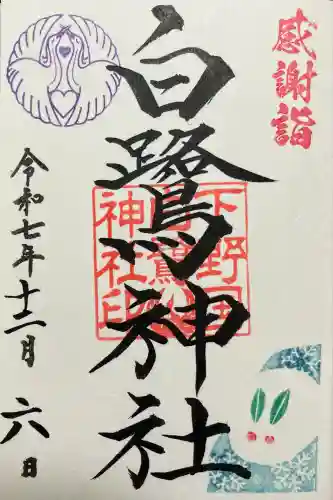 感謝詣
白鷺神社
下野国
白鷺
神社印
令和七年十二月六日